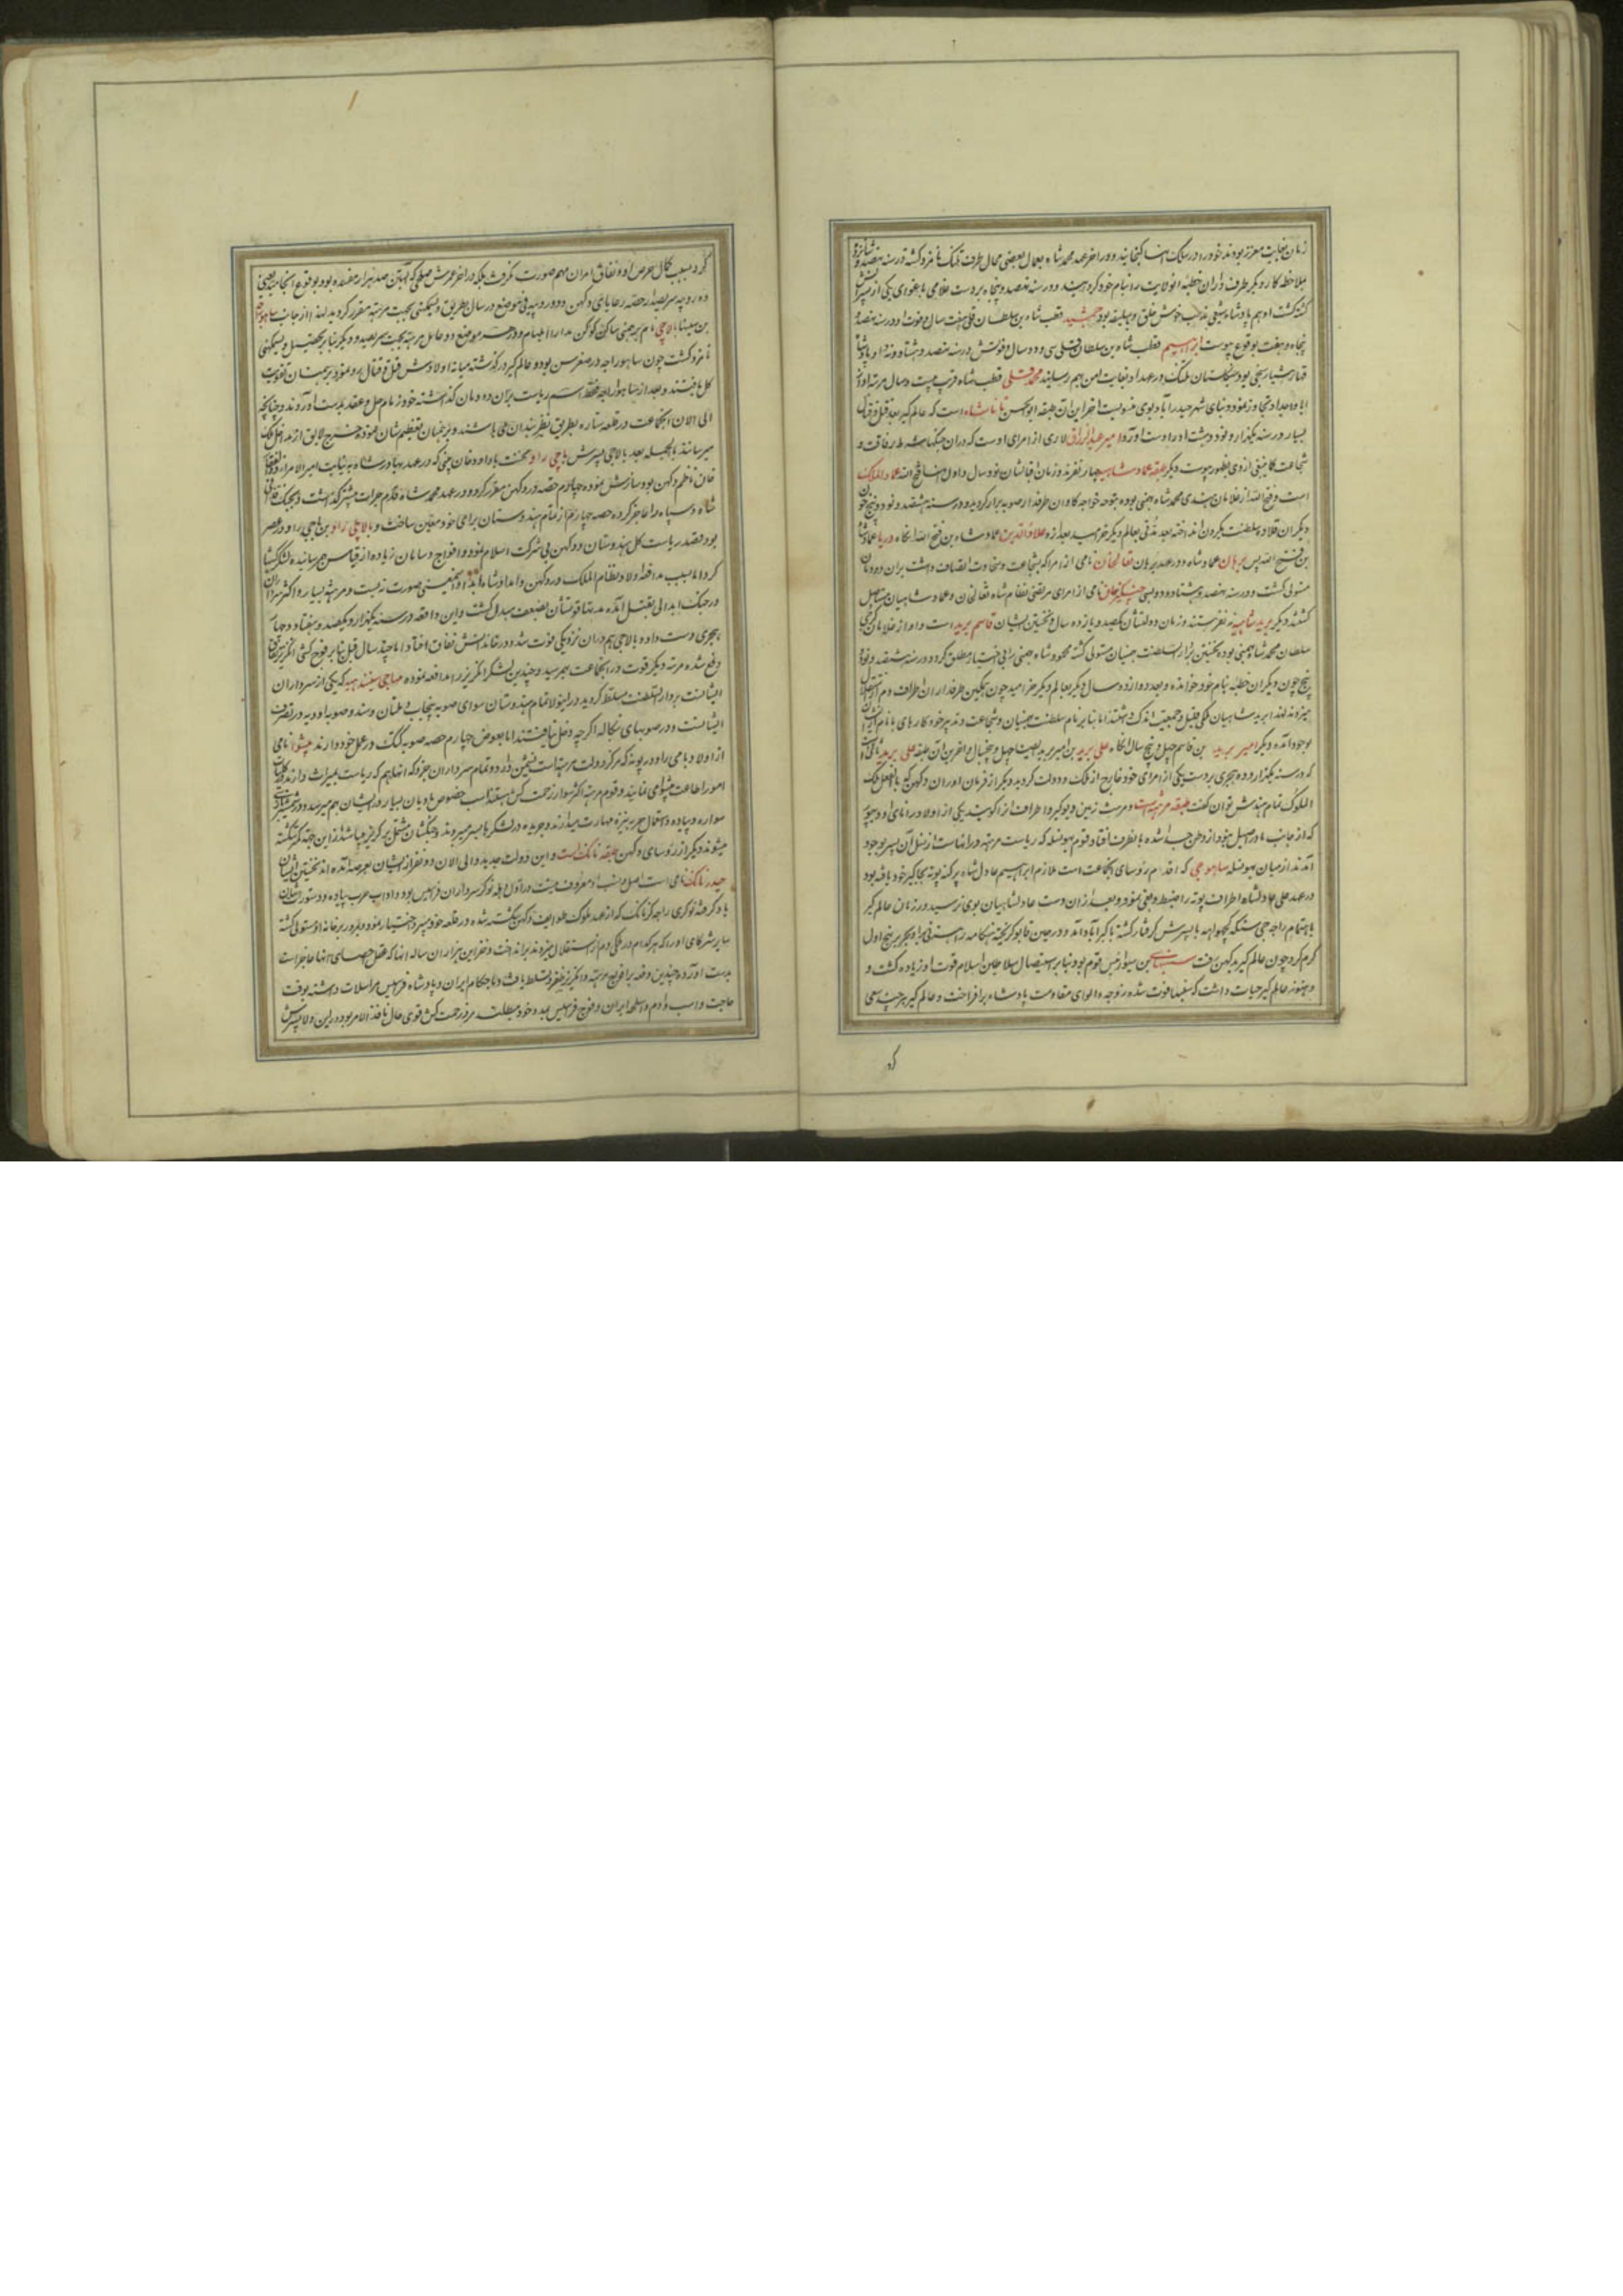 زمان بغایت معزز بودند خود را در سلک انها کنجانید و در اخر عهد محمد شاه بعمال بعضی محال طرف تلنک نامزد کشته در سنه نهصد و شانزده
بملاحظه کار دیکر طرف داران خطبه انولایت را بنام خود کرد و در سنه نهصد و پنجاه بر دست غلامی باغوای یکی از پسرانش
کشته کشت او هم پادشاه شیعی مذهب خوش خلق و سلیقه بود جمشید قطب شاه بن سلطان قلی هفت سال و فوت او در سنه نهصد و
پنجاه و هفت بوقوع پیوست ابراهیم قطب شاه بن سلطان قلی سی و دو سال و فوتش در سنه نهصد و هشتاد و نه او پادشاه
قهار هشیار سخی بود تلنک در عهد او بغایت امن بهم رسانید محمد قلی قطب شاه قریب بیست و سال مرتبه او از
ابا و اجداد تجاوز نمود و بنای شهر حیدراباد بوی منسوبست اخر این طبقه ابوالحسن تاناشاه است که عالم کیر بعد قتل و قتال
بسیار در سنه یکهزار و نود و هشت او را دست اورد امیر عبدالرزاق لاری از امرای اوست که دران جنکها شرط رفاقت و
شجاعت کما ینبغی از وی بظهور پیوست دیکر طبقه عماد شاهیه چهار نفرند و زمان اقبالشان نود سال و اول انها فتح الله عماد الملک
است و فتح الله از غلامان هندی محمد شاه بهمنی بوده بتوجه خواجه کاوان طرفدار صوبه برار کردید و در سنه هشتصد و نود و پنج چون
دیکران قلاده سلطنت بکردن انداخته بعد مدتی بعالم دیکر خرامید بعد از وی علاء الدین عماد شاه بن فتح الله انکاه دریا عماد شاه
بن فتح الله پس برهان عماد شاه و در عهد برهان تفالخان نامی از امرا که بشجاعت و سخاوت اتصاف داشت بران دودمان
مستولی کشت و در سنه نهصد و هشتاد و دو بسعی چنکیزخان نامی از امرای مرتضی نظام شاه تفالخان و عماد شاهیان مستاصل
کشتند دیکر برید شاهیه نفر هستند و زمان دولتشان یکصد و یازده سال و نخستین ایشان قاسم برید است و او از غلامان کرجی
سلطان محمد شاه بهمنی بوده نخستین سلطنت بهمنیان مستولی کشته محمود شاه بهمنی را بی اختیار مطلق کرد و در سنه هشتصد و نود و
پنج چون دیکران خطبه بنام خود خوانده و بعد دوازده سال دیکر بعالم دیکر خرامید چون همکین طرفداران اطراف دم از استقلال
میزدند لهذا برید شاهیان ملکی قلیل و جمعیت اندک داشتند اما بنابر نام سلطنت بهمنیان و شجاعت و تدبیر خود کارهای بانام ازیشان
بوجود آمده دیکر امیر برید بن قاسم چهل و پنج سال انکاه علی برید بن امیر برید و اخرین ان طبقه علی برید ثانی است
که در سنه یکهزار و ده هجری بر دست یکی از امرای خود خارج از ملک و دولت کردید دیکر از فرمان اوران دکهن که بالفعل ملک
الملوک تمام هندش توان کفت طبقه مرهته است و مرهت زمین دیوکیر و اطراف انرا کویند یکی از اولاد رانای اودیپور
که از جانب مادر اصیل نبود از وطن جدا شده بانطرف افتاد و قوم بهونسله که ریاست مرهته در انهاست از نسل آن پسر بوجود
آمدند از میان بهونسله ساهوجی که اقدم رؤسای انجماعت است ملازم ابراهیم عادل شاه پرکنه پونه بجاکیر خود یافته بود
در عهد علی عادلشاه اطراف پونه را ضبط و بغی نمود و بعد ازان دست عادلشاهیان بوی نرسید و در زمان عالم کیر
باهتمام راجه جی سنکه کچهواهه با پسرش کرفتار کشته باکبراباد آمد و در حین قابو کریخته هنکامه رهزنی را دیکر بر نهج اول
کرم کرد چون عالم کیر بدکهن رفت سنبها بن سیوا رئیس قوم بود و بنابر استیصال سلاطین اسلام قوت او زیاده کشت و
و هنوز عالم کیر حیات داشت که سنبها فوت شده زوجه و لوای مقاومت پادشاه برافراخت و عالم کیر هر چند سعی
کرد
کرد بسبب کمال حرص او و نفاق امرا ان مهم صورت نکرفت بلکه در اخر عمرش صلحی که بهتر ازان صد هزار مفسده بود بوقوع انجامید یعنی
ده روپیه سر صد از حصه رعایای دکهن و دو روپیه فی موضع در سال بطریق دیسمکهی بجهت مرهته مقرر کردید لهذا از جانب ساهو راجه
بن سنبا بالاجی نام برهمنی ساکن کوکن مدارالمهام و در هر موضع دو عامل مرهته بجهت سر صد و دیکر بنابر تحصیل دیسمکهی
نامزد کشت چون ساهو راجه در صغر سن بود و عالم کیر درکذشته میانه اولادش قتل و قتال رو نمود برهمنان تقویت
کل یافتند و بعد از ساهو راجه فقط اسم ریاست بران دودمان کذاشته خود زمام حل و عقد بدست اوردند و چنانچه
الی الان انجماعت در قلعه ستاره بطریق نظربندان می باشند و برهمنان تعظیم شان نموده خرج لایق از مداخل ملک
میرسانند بالجمله بعد بالاجی پسرش باجی راو بحنت با داود خان پنی که در عهد بهادر شاه به نیابت امیر الامراء ذوالفقار
خان ناظم دکهن بود سازش نموده چهارم حصه در دکهن مقرر کرد و در عهد محمد شاه قدم جرات پیشتر کذاشت و بجنک
شاه و سپاه را عاجز کرده حصه چهارم از تمام هندوستان برای خود معین ساخت و بالاجی راو بن باجی راو در عصر
بود مقصد ریاست کل هندوستان و دکهن بی شرکت اسلام نمود و افواج و سامان زیاده از قیاس بهم رسانیده لشکرکشیها
کرد اما بسبب مدافعه اولاد نظام الملک در دکهن و امداد شاه ابدالی اینمعنی صورت نبست و مرهته بسیار و اکثر سرداران
در جنک ابدالی بقتل آمده مدتها قوتشان بضعف مبدل کشت و این واقعه در سنه یکهزار و یکصد و هفتاد و چهار
هجری دست داد و بالاجی هم دران نزدیکی فوت شده در خاندانش نفاق افتاد اما چند سال قبل بنابر فوج کشی انکریز نفاق
رفع شده مرتبه دیکر قوت در انجماعت بهم رسید و چندین لشکر انکریز را مدافعه نموده مهاجی سیندهیه که یکی از سرداران
ایشانست بر دارالسلطنت مسلط کردید و در اینولا تمام هندوستان سوای صوبه پنجاب و ملتان و سند و صوبه اوده در تصرف
ایشانست و در صوبهای بنکاله اکرچه دخل نیافتند اما بعوض چهارم حصه صوبه کتک در عمل خود دارند پیشوا نامی
از اولاد باجی راو در پونه که مرکز دولت مرهته است نشیمن دارد و تمام سرداران جزو کل انها هم که ریاست بمیراث دارند در کلیات
امور اطاعت پیشوا می نمایند و قوم مرهته اکثر سوار زحمت کش هستند اسب خصوص مادیان بسیار در ایشان بهم میرسد و در شمشیرزنی
سواره و پیاده و استعمال حربه نیزه مهارت میدارند و جریده در لشکرها بسر میبرند و جنکشان مشتمل بر کریز میباشد ازین جهة کمتر کشته
میشوند دیکر از رؤسای دکهن طبقه نانک است و این دولت جدید و الی الان دو نفر ازیشان بعرصه آمده اند نخستین ایشان
حیدر نانک نامی است اصل و نسب او معروف نیست در اول وهله نوکر سرداران فرانسیس بود و اداب حرب پیاده و دستور ایشان
یاد کرفته نوکری راجه کرناتک که از عهد ملوک طوایف دکهن شکسته شده در قلعه خود بسر و اختیار نمود و بمرور بر خانه او مستولی کشته
سایر شرکای او را که هر کدام در ملکی دم از استقلال میزدند برانداخت و خزاین هزاران ساله انها که عقل از احصای انها عاجز است
بدست آورده چندین دفعه بر افواج مرهته و انکریز ظفر و تسلط یافت و با حکام ایران و پادشاه فرانسیس مراسلات داشته بوقت
حاجت و اسب و آدم و اسلحه ایران و فوج فرانسیس بمدد خود میطلبید مرد زحمت کش قوی حال نافذ الامر بود و درین ولا پسرش